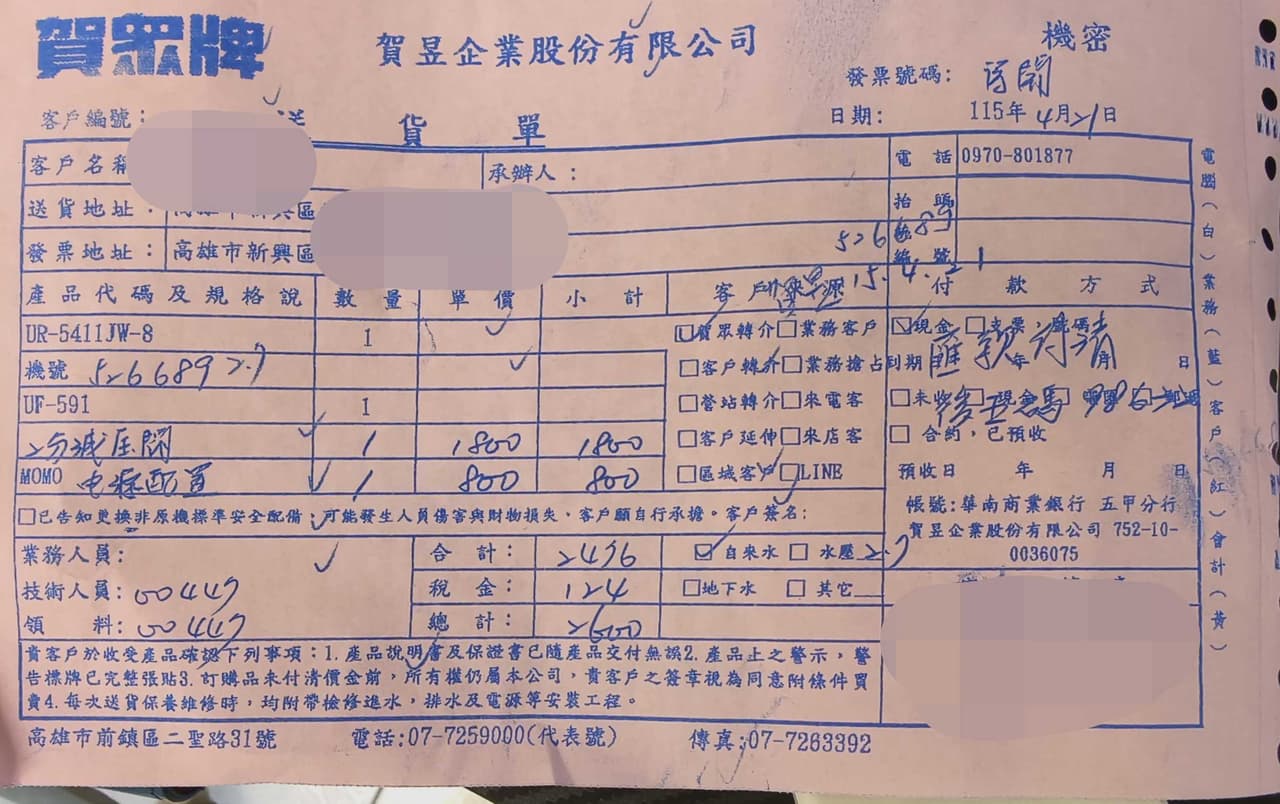 賀眾牌
賀昱企業股份有限公司
機密
發票號碼:
客戶編號:
貨單
日期: 115年4月21日
客戶名稱
承辦人:
電話 0970-801877
送貨地址: 高雄市新興區
抬頭
發票地址: 高雄市新興區
526689
編號
15.4.21
產品代碼及規格說 數量 單價 小計 客戶來源 付款方式
UR-5411JW-8 1
☑賀眾轉介□業務客戶 ☑現金□支票,號碼
機號 5266892.7
□客戶轉介□業務搶占 到期 年 月 日
UF-591 1
□營站轉介□來電客 □未收
2分減压閥 1 1800 1800
□客戶延伸□來店客 □合約,已預收
MOMO 电源配置 1 800 800
□區域客戶□LINE 預收日 年 月 日
□已告知更換非原機標準安全配備,可能發生人員傷害與財物損失、客戶願自行承擔。客戶簽名:
帳號:華南商業銀行 五甲分行
賀昱企業股份有限公司 752-10-
0036075
業務人員: 合計: 2476 ☑自來水 □水壓2.7
技術人員: 00447 稅金: 124 □地下水 □其它
領料: 00447 總計: 2600
貴客戶於收受產品確認下列事項:1.產品說明書及保證書已隨產品交付無誤2.產品上之警示,警
告標牌已完整張貼3.訂購品未付清價金前,所有權仍屬本公司,貴客戶之簽章視為同意附條件買
賣4.每次送貨保養維修時,均附帶檢修進水,排水及電源等安裝工程。
高雄市前鎮區二聖路31號 電話:07-7259000(代表號) 傳真:07-7263392
電腦(白)業務(藍)客戶(紅)會計(黃)